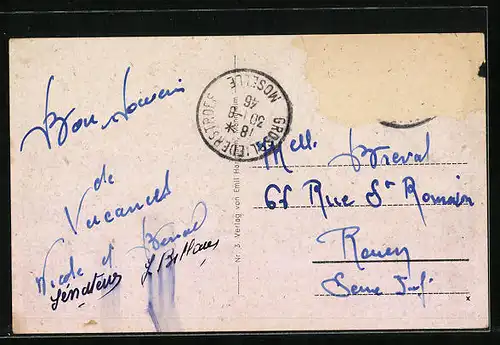 Bon Souvenir
de
Vacances
Nicole et
Sénateur
GROSBLIEDERSTROFF
MOSELLE
18 *
30 - 8
46
Nr. 3. Verlag von Emil
Mell. Breval
66 Rue St Romain
Rouen
Seine Inf.